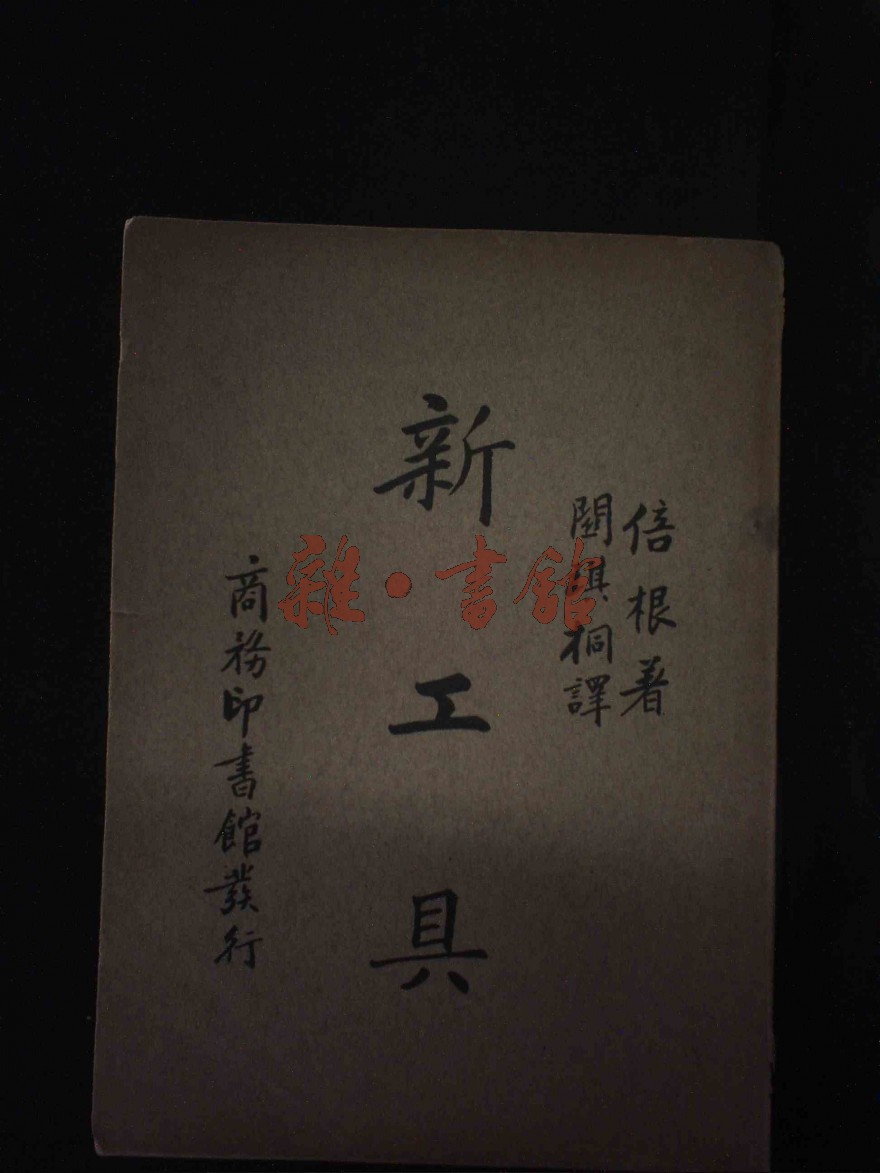 倍根著
關琪桐譯
新工具
商務印書館發行
雜·書館